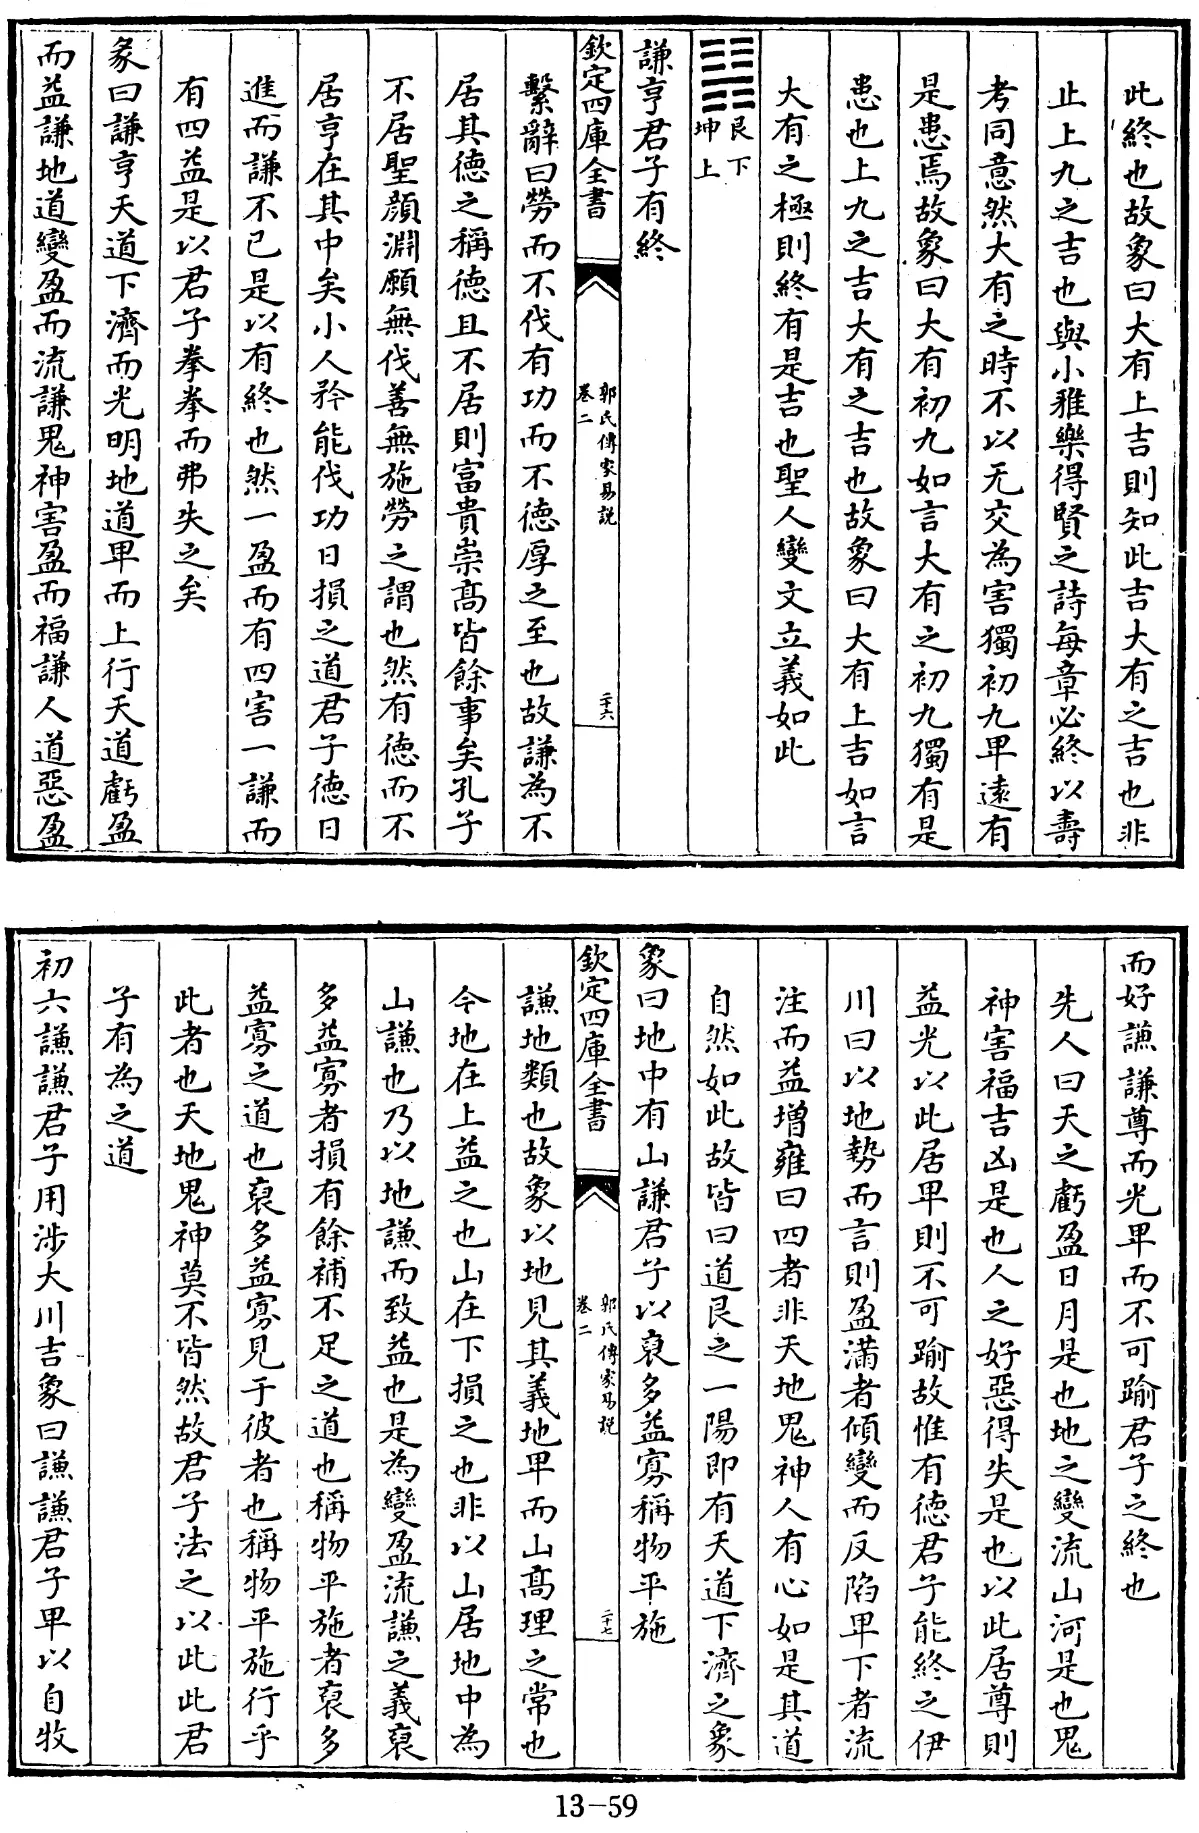 此終也故象曰大有上吉則知此吉大有之吉也非
止上九之吉也與小雅樂得賢之詩每章必終以壽
考同意然大有之時不以无交為害獨初九卑遠有
是患焉故象曰大有初九如言大有之初九獨有是
患也上九之吉大有之吉也故象曰大有上吉如言
大有之極則終有是吉也聖人變文立義如此
艮下
坤上
謙亨君子有終
欽定四庫全書
郭氏傳家易說
卷二
二十六
繫辭曰勞而不伐有功而不徳厚之至也故謙為不
居其徳之稱徳且不居則富貴崇髙皆餘事矣孔子
不居聖顔淵願無伐善無施勞之謂也然有徳而不
居亨在其中矣小人矜能伐功日損之道君子徳日
進而謙不已是以有終也然一盈而有四害一謙而
有四益是以君子拳拳而弗失之矣
彖曰謙亨天道下濟而光明地道卑而上行天道虧盈
而益謙地道變盈而流謙鬼神害盈而福謙人道惡盈
而好謙謙尊而光卑而不可踰君子之終也
先人曰天之虧盈日月是也地之變流山河是也鬼
神害福吉凶是也人之好惡得失是也以此居尊則
益光以此居卑則不可踰故惟有徳君子能終之伊
川曰以地勢而言則盈滿者傾變而反陷卑下者流
注而益增雍曰四者非天地鬼神人有心如是其道
自然如此故皆曰道艮之一陽即有天道下濟之象
象曰地中有山謙君子以裒多益寡稱物平施
欽定四庫全書
郭氏傳家易説
卷二
二十七
謙地類也故象以地見其義地卑而山髙理之常也
今地在上益之也山在下損之也非以山居地中為
山謙也乃以地謙而致益也是為變盈流謙之義裒
多益寡者損有餘補不足之道也稱物平施者裒多
益寡之道也裒多益寡見于彼者也稱物平施行乎
此者也天地鬼神莫不皆然故君子法之以此此君
子有為之道
初六謙謙君子用涉大川吉象曰謙謙君子卑以自牧
13-59